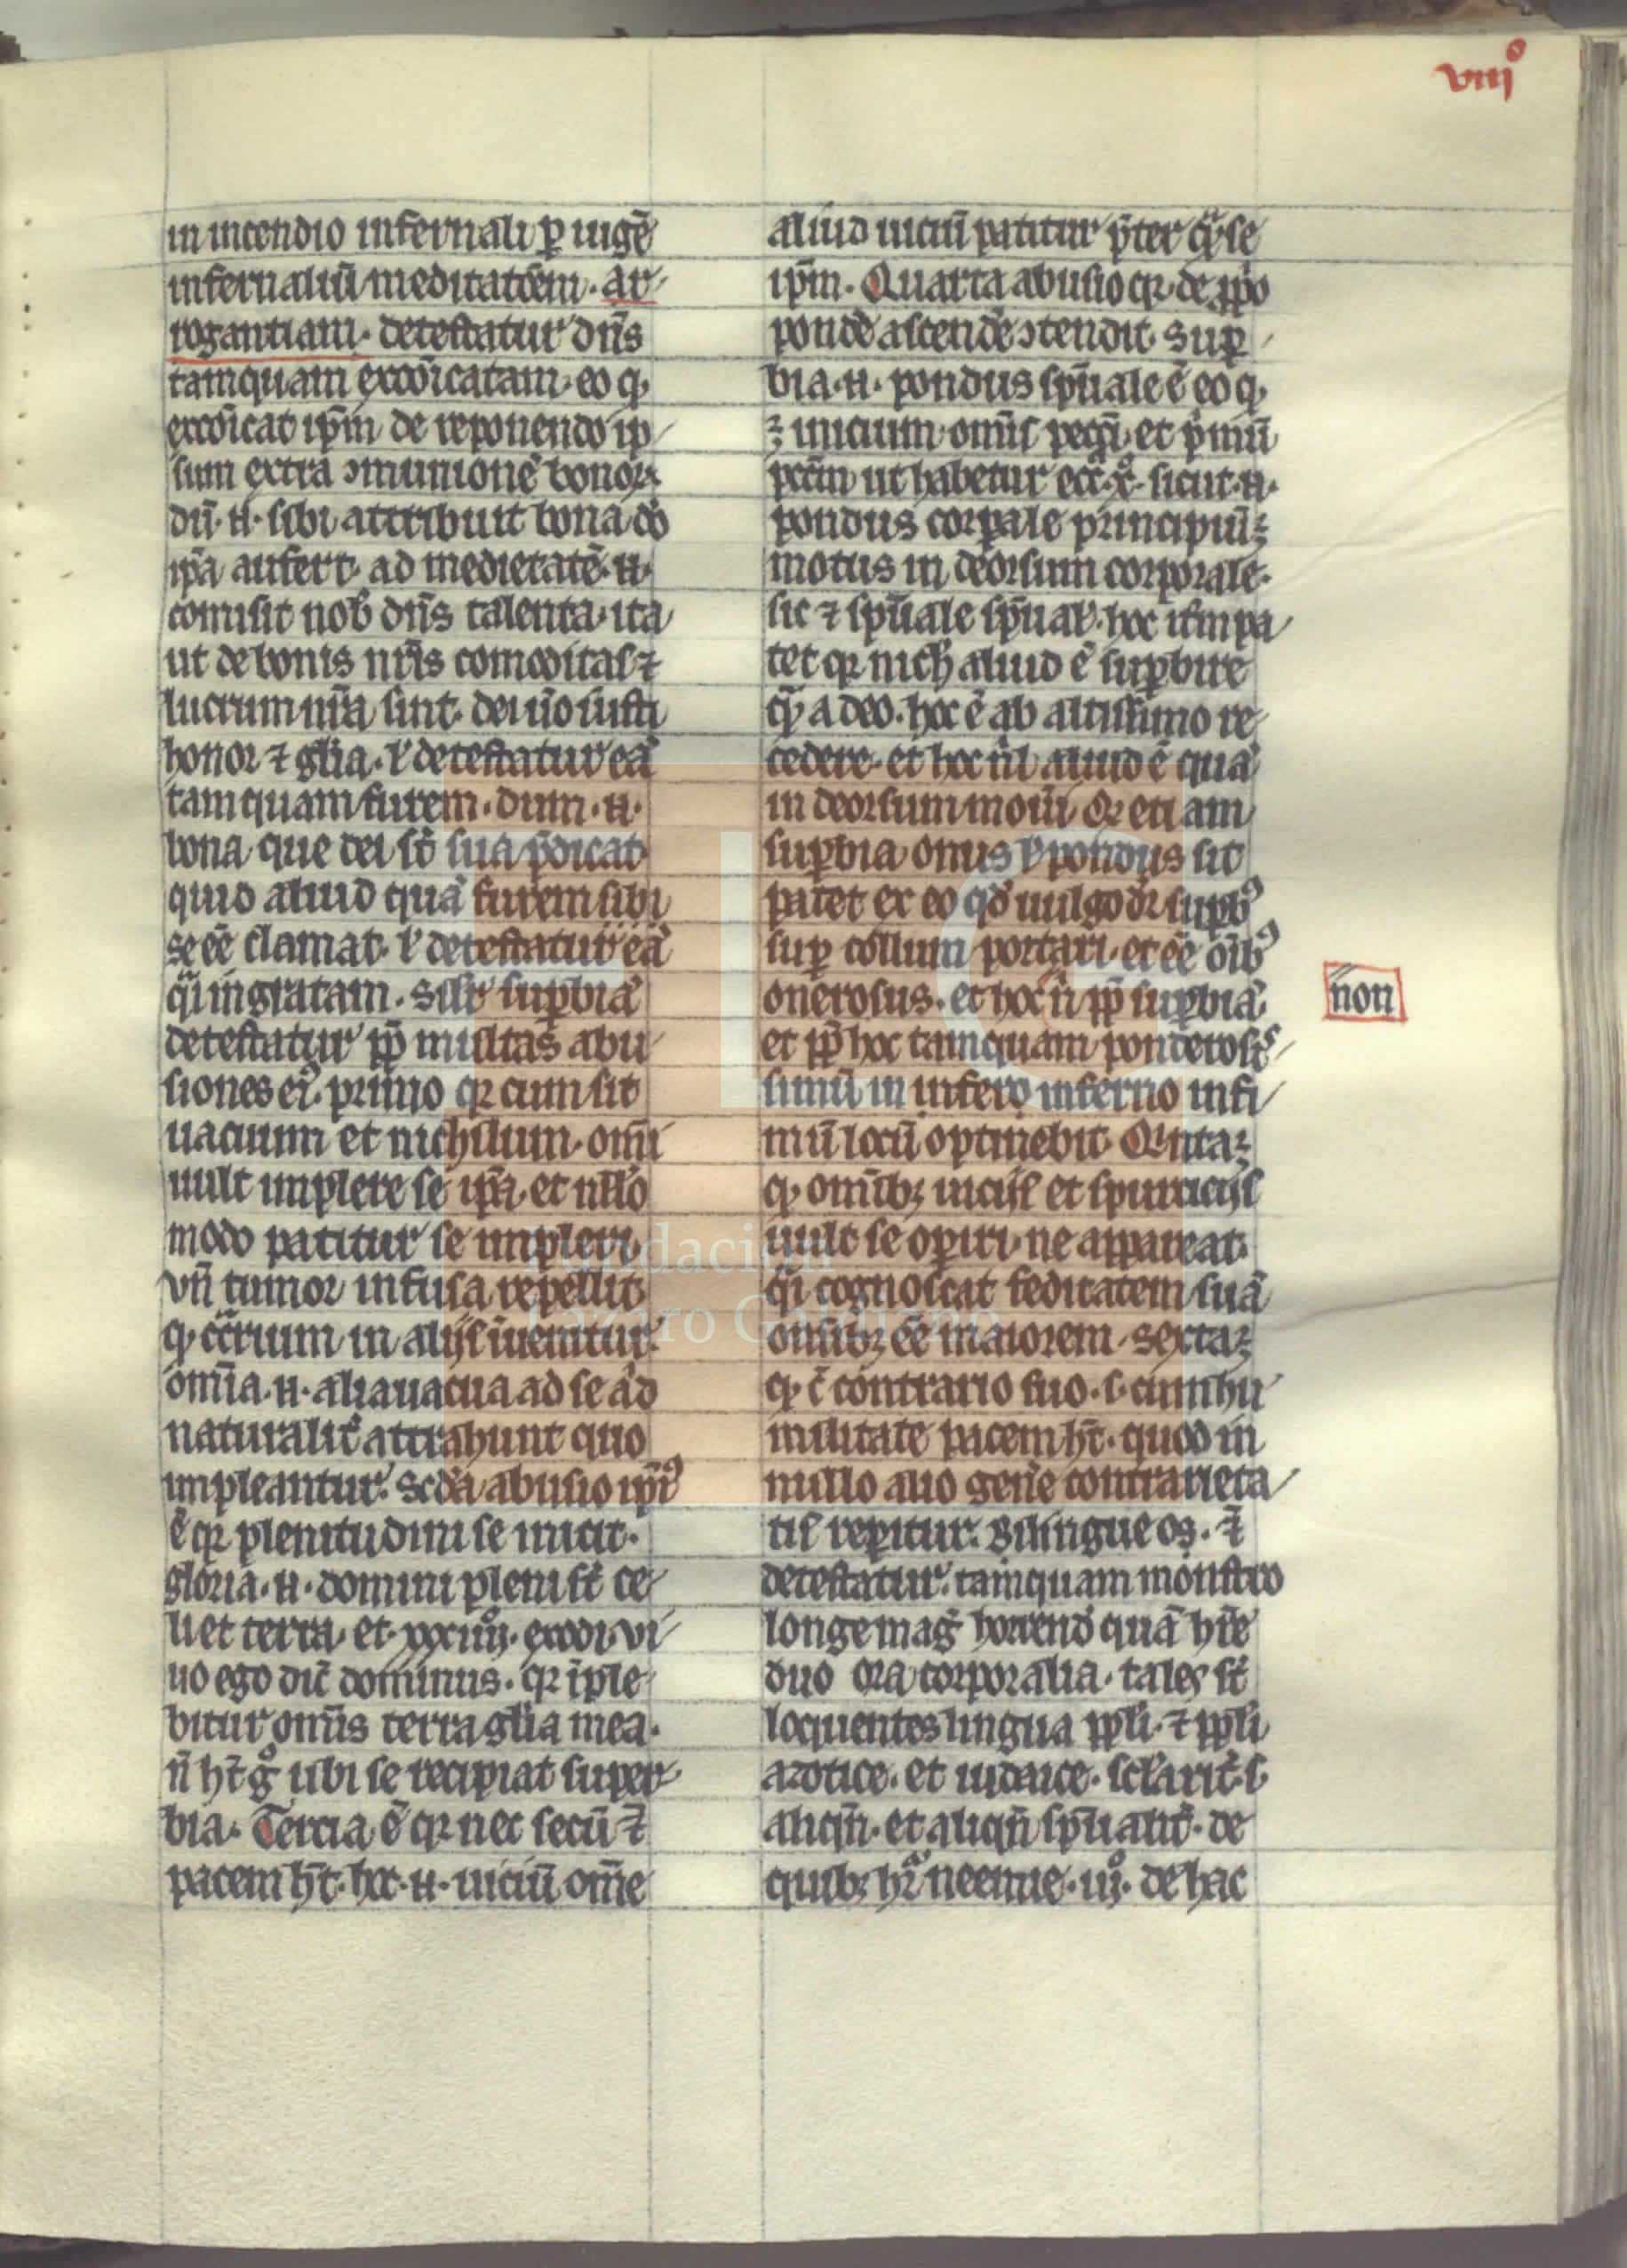 viijº
in incendio infernali ꝑ iugẽ
infernaliũ meditatõem. Ar
rogantiam. detestatur dñs
tamquam excõicatam. eo q,
excõicat ip̃m de reponendo ip
sum extra ↄmunionẽ bonoꝝ
dũ .n. sibi attribuit bona dõ
ip̃a aufert. ad medietatẽ .n.
comisit nob̃ dñs talenta. ita
ut de bonis nr̃is comoditas ⁊
lucrum nr̃a sint. dei ũo iusti
honor ⁊ gl̃ia. ł detestatur eã
tamquam furem. dum .n.
bona que dei st̃ sua p̃dicat
quid aliud quã furem sibi
se eẽ clamat. ł detestatur eã
q̃i ingratam. Silr̃ suꝑbiã
detestatur ꝓp̃ multas abu
siones eiꝰ. primo qꝛ cum sit
uacuum et nichilum. om̃i
uult implere se ip̃a. et nll̃o
modo patitur se impleri.
vñ tumor infusa repellit
q, cc̃rium in alijs iuenitur.
om̃ia .n. alia uacua ad se ad
naturalit̃ attrahunt quo
impleantur. Scd̃a abusio ip̃iꝰ
ẽ qꝛ plenitudini se inicit.
gloria .n. domini pleni st̃ ce
li et terra. et. xxxiiijº. exodi. vi
uo ego dic̃ dominus. qꝛ iple
bitur om̃is terra gl̃ia mea.
ñ ht̃ gº ubi se recipiat super
bia. Tercia ẽ qꝛ nec secũ ⁊
pacem ht̃. hoc .n. uiciũ om̃e
aliud uiciũ patitur p̃ter q̃ se
ip̃m. Quarta abusio qꝛ de ꝓp̃o
pondẽ ascendẽ ↄtendit. Suꝑ
bia .n. pondus sp̃uale ẽ eo q,
⁊ inicium om̃is pcc̃i. et p̃mũ
pcc̃m ut habetur ecc̃. xº. sicut .n.
pondus corꝑale principiũ ⁊
motus in deorsum corporale.
sic ⁊ sp̃uale sp̃ual̃. hoc it̃m pa
tet qꝛ nich̃ aliud ẽ suꝑbire
q̃ a deo. hoc ẽ ab altissimo re
cedere. et hoc ñl aliud ẽ quã
in deorsum moũi. Qꝛ etiam
suꝑbia onus ł pondus sit
patet ex eo qd̃ uulgo dr̃ suꝑbꝰ
suꝑ collum portari. et eẽ oĩbꝰ
onerosus. et hoc ñ ꝓp̃ suꝑbiã
non
et ꝓp̃ hoc tamquam ponderosis
simũ in infero inferno infi
mũ locũ optinebit. Qinta ⁊
q, omĩbꝫ uicijs et spurcicijs
uult se oꝑiri. ne appareat.
q̃i cognoscat feditatem suã
omĩbꝫ eẽ maiorem. Sexta ⁊
q, c̃ contrario suo .s. cum hu
militate pacem ht̃. quod in
nullo alio geñe contrarieta
tis reꝑitur. Bilingue os. ⁊
detestatur. tamquam monstro
longe mag̃ horrend̃ quã hr̃e
duo ora corporalia. tales st̃
loquentes lingua
azotice. et iudaice.
aliqñ. et aliqñ sp̃ualit̃. de
quibꝫ hr̃ neemie. iijº. de hac